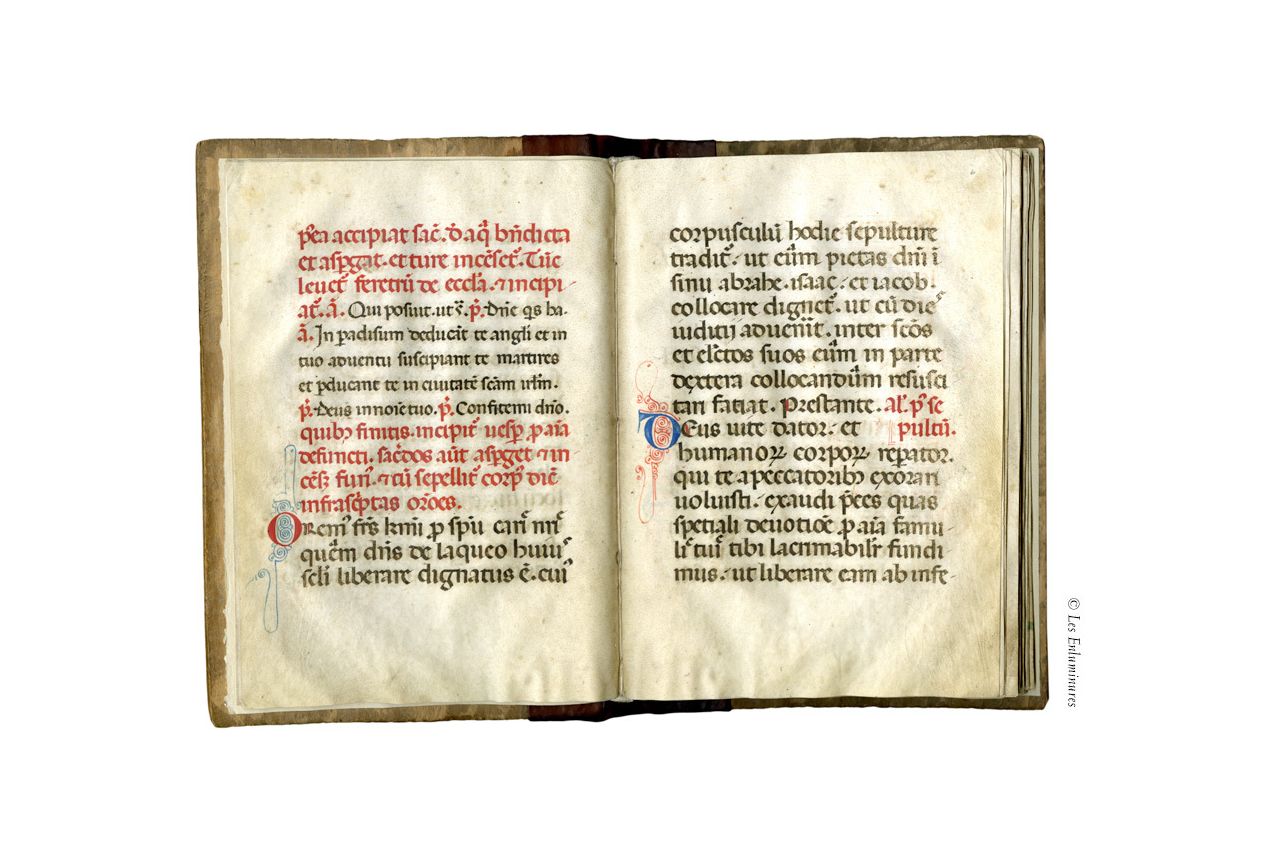 p̄ea accipiat sac̄. d̄ aq̄ bn̄dicta
et asp̄gat. et ture incēset᷑. Tūc
leuet᷑ feretrū de eccl̄a. ⁊ incipi-
at᷑. a᷑. Qui posuit. ut s᷑. p᷑. Dn̄e qs ha-
a᷑. In ꝑadisum deducāt te angli et in
tuo aduentu suscipiant te martires
et ꝑducant te in ciuitatē scām irl̄m.
p᷑. Deus in noīe tuo. p᷑. Confitemi dn̄o.
quibꝫ finitis. incipit᷑ uesp̄ ꝓ aīa
defuncti. sac̄dos aūt asp̄get ⁊ in-
cēs᷑ fun᷑. ⁊ cū sepellit᷑ corpꝰ dic̄
infrasc̄ptas or̄oes.
Oremꝰ frs̄ kmi ꝓ sp̄u cari nr̄i
quem dn̄s de laqueo huiuꝰ
scl̄i liberare dignatus ē. cuiꝰ
corpusculū hodie sepulture
tradit᷑. ut eum pietas dn̄i ī
sinu abrahe. isaac. et iacob.
collocare dignet᷑. ut cū dieˢ
iuditii aduen̄it. inter scōs
et elc̄tos suos eum in parte
dextera collocandum resusci
tari faciat. Prestante. al᷑. pꝰ se
DEus uite dator. et pultū.
humanoꝝ corpoꝝ reꝑator.
qui te a peccatoribꝫ exorari
uoluisti. exaudi p̄ces quas
spetiali deuotiōe ꝓ aīa famu-
li tui tibi lacrimabilr̄ fundi-
mus. ut liberare eam ab infe-
© Les Enluminures